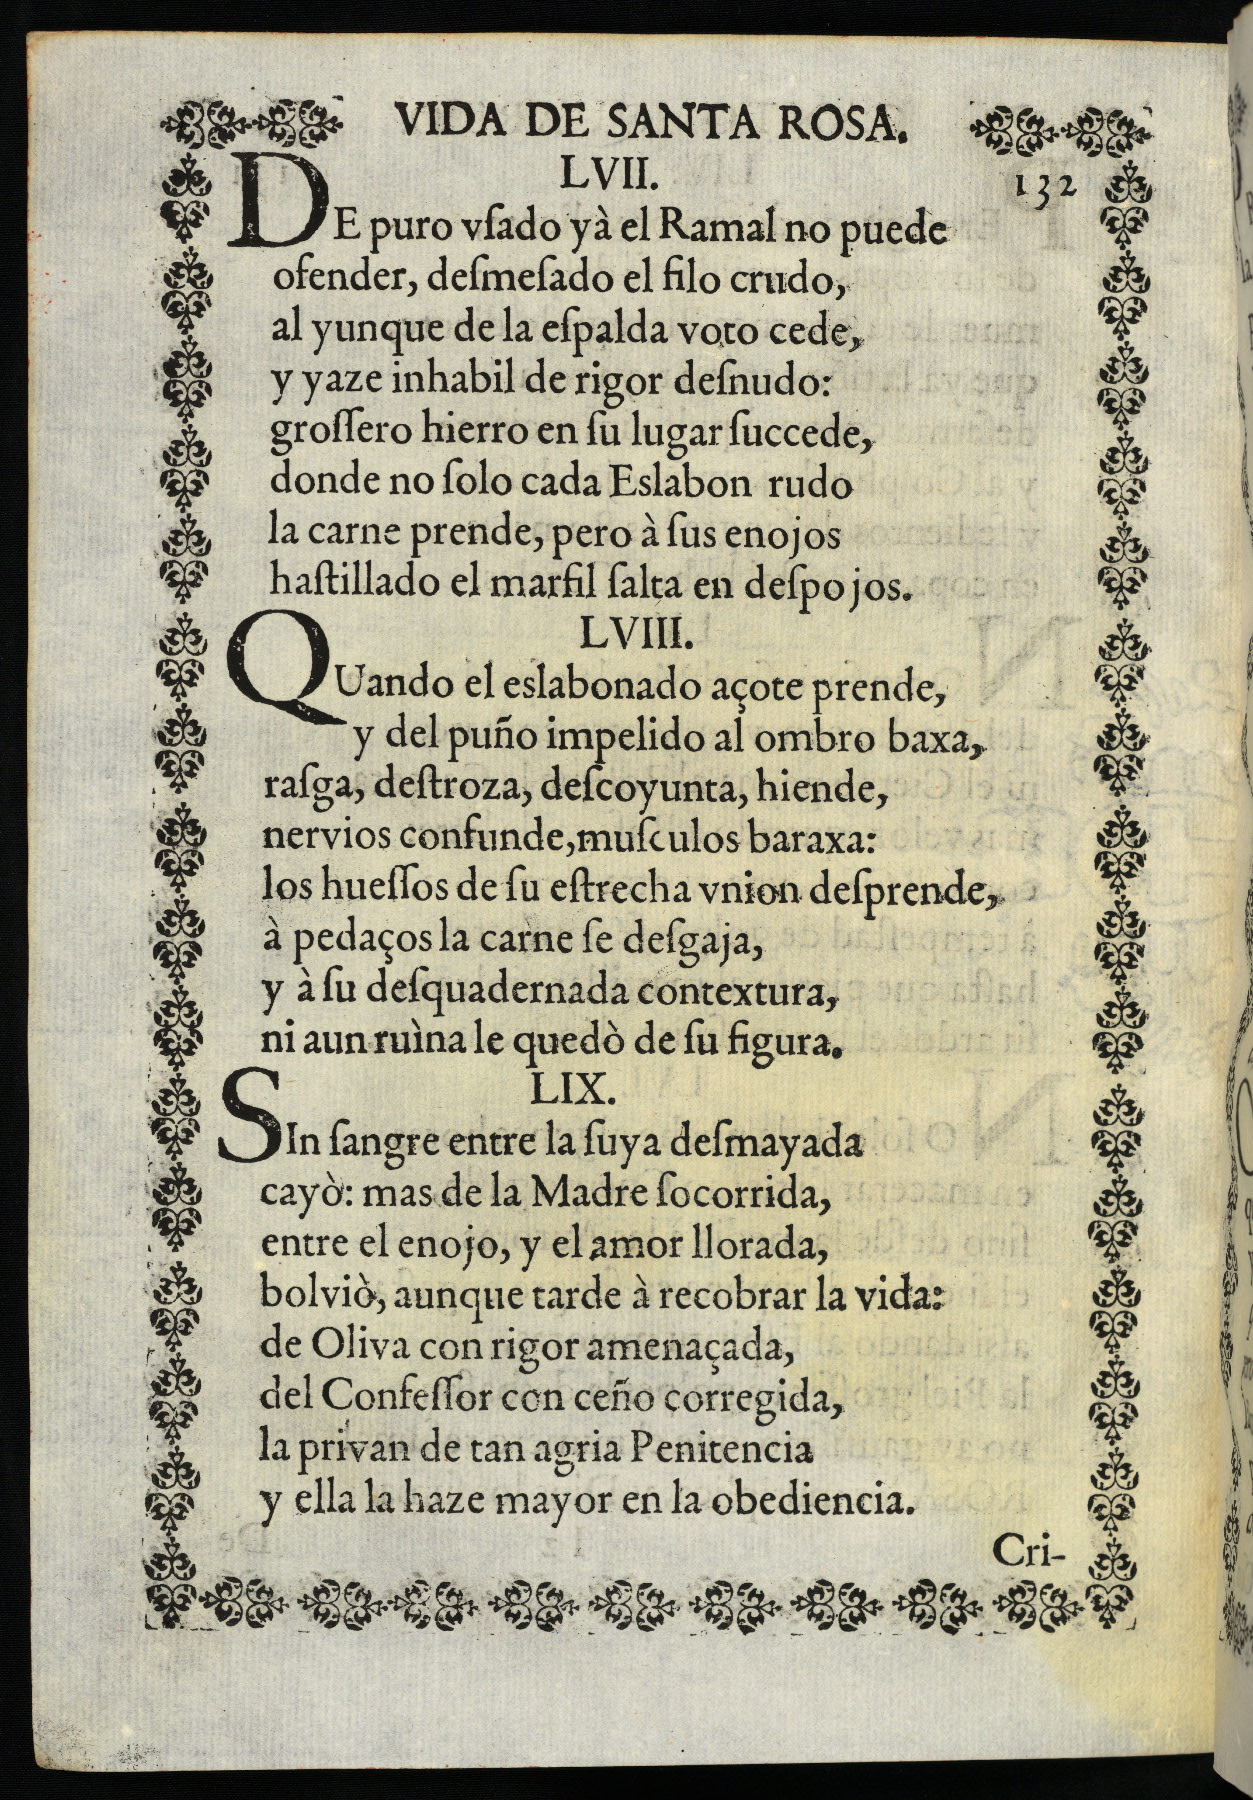 VIDA DE SANTA ROSA.
LVII.
132
DE puro vſado yà el Ramal no puede
ofender, deſmeſado el filo crudo,
al yunque de la eſpalda voto cede,
y yaze inhabil de rigor deſnudo:
groſſero hierro en ſu lugar ſuccede,
donde no ſolo cada Eslabon rudo
la carne prende, pero à ſus enojos
haſtillado el marfil ſalta en deſpojos.
LVIII.
QUando el eslabonado açote prende,
y del puño impelido al ombro baxa,
raſga, deſtroza, deſcoyunta, hiende,
nervios confunde, muſculos baraxa:
los hueſſos de ſu eſtrecha vnion deſprende,
à pedaços la carne ſe deſgaja,
y à ſu deſquadernada contextura,
ni aun ruìna le quedò de ſu figura.
LIX.
SIn ſangre entre la ſuya deſmayada
cayò: mas de la Madre ſocorrida,
entre el enojo, y el amor llorada,
bolviò, aunque tarde à recobrar la vida:
de Oliva con rigor amenaçada,
del Confeſſor con ceño corregida,
la privan de tan agria Penitencia
y ella la haze mayor en la obediencia.
Cri-